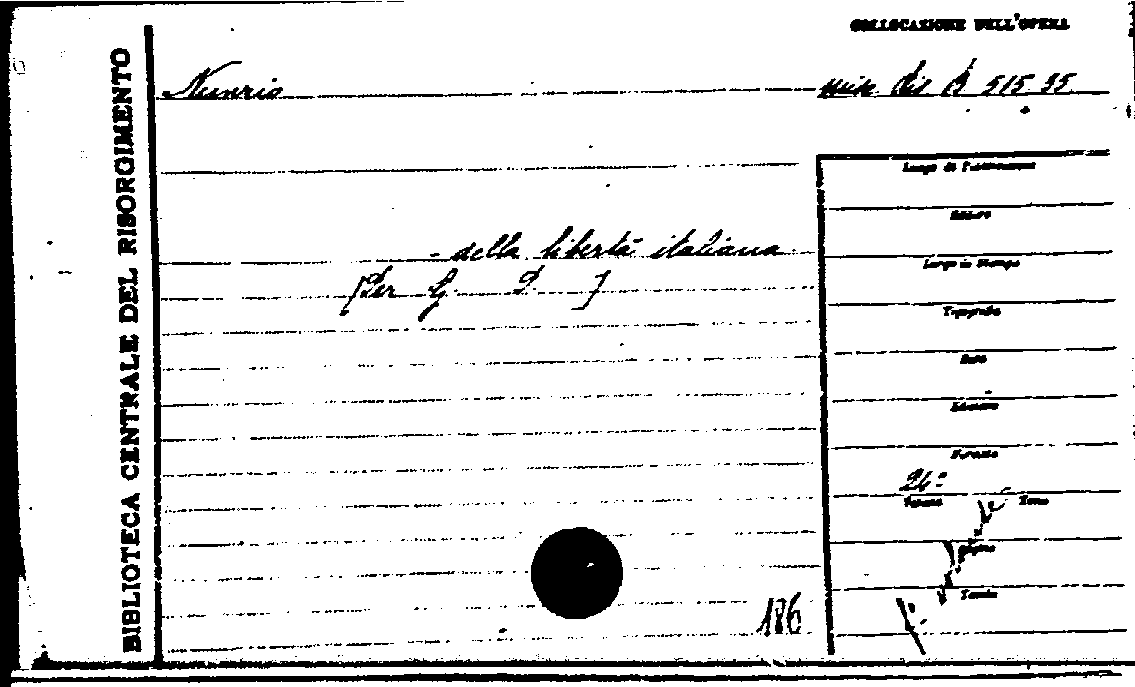 COLLOCAZIONE DELL'OPERA
BIBLIOTECA CENTRALE DEL RISORGIMENTO
B 515 35
Luogo di Pubblicazione
Editore
- della libertà italiana
Luogo di Stampa
[Per G. D. ]
Tipografia
Data
Edizione
Formato
Volume
Tomo
Pagine
Tavole
186